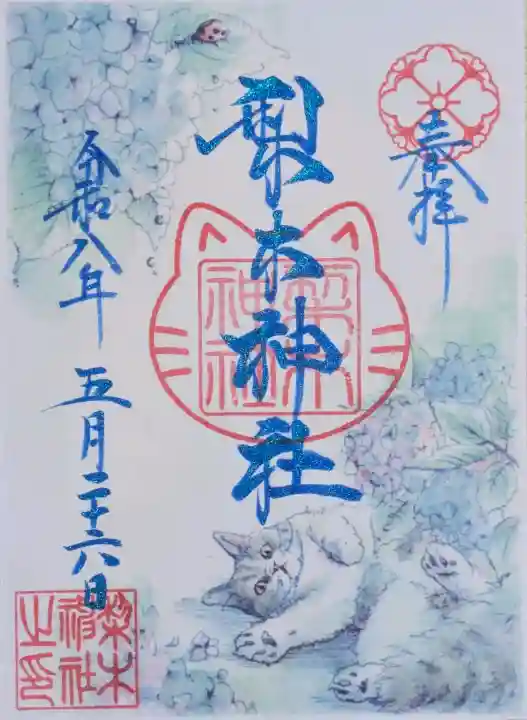 奉拝
梨木神社
梨木神社
令和八年 五月二十六日
梨木神社之印